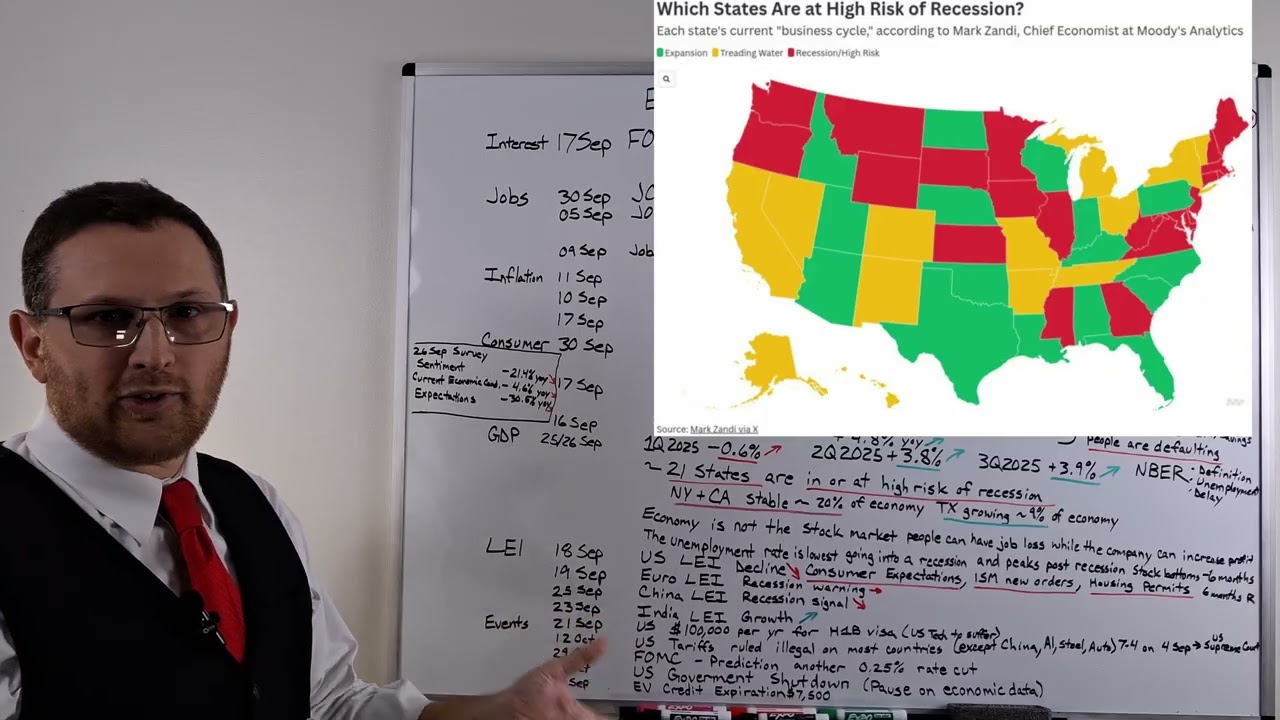 Which States Are at High Risk of Recession?
Each state's current "business cycle," according to Mark Zandi, Chief Economist at Moody's Analytics
Expansion Treading Water Recession/High Risk
Source: Mark Zandi via X
E
Interest 17 Sep FO
Jobs 30 Sep JO
05 Sep Jo
09 Sep Job
Inflation 11 Sep
10 Sep
17 Sep
Consumer 30 Sep
26 Sep Survey
Sentiment -21.4% yoy
Current Economic Cond. -4.6% yoy
Expectations -30.5% yoy
17 Sep
16 Sep
GDP 25/26 Sep
people are defaulting
1Q2025 -0.6% 2Q2025 +3.8% 3Q2025 +3.9% NBER - Definition
Unemployment
Delay
~ 21 States are in or at high risk of recession
NY + CA stable ~ 20% of economy TX growing ~ 9% of economy
Economy is not the stock market people can have job loss while the company can increase profit
The unemployment rate is lowest going into a recession and peaks post recession Stock bottoms ~6 months
LEI 18 Sep US LEI Decline Consumer Expectations, ISM new orders, Housing Permits 6 months R
19 Sep Euro LEI Recession warning
25 Sep China LEI Recession signal
23 Sep India LEI Growth
Events 21 Sep US $100,000 per yr for H1B visa (US Tech to suffer)
12 Oct US Tariffs ruled illegal on most countries (except China, Al, Steel, Auto) 7-4 on 4 Sep → US Supreme Court
FOMC - Prediction another 0.25% rate cut
US Goverment Shutdown (Pause on economic data)
Sep EV Credit Expiration $7,500
EXPO